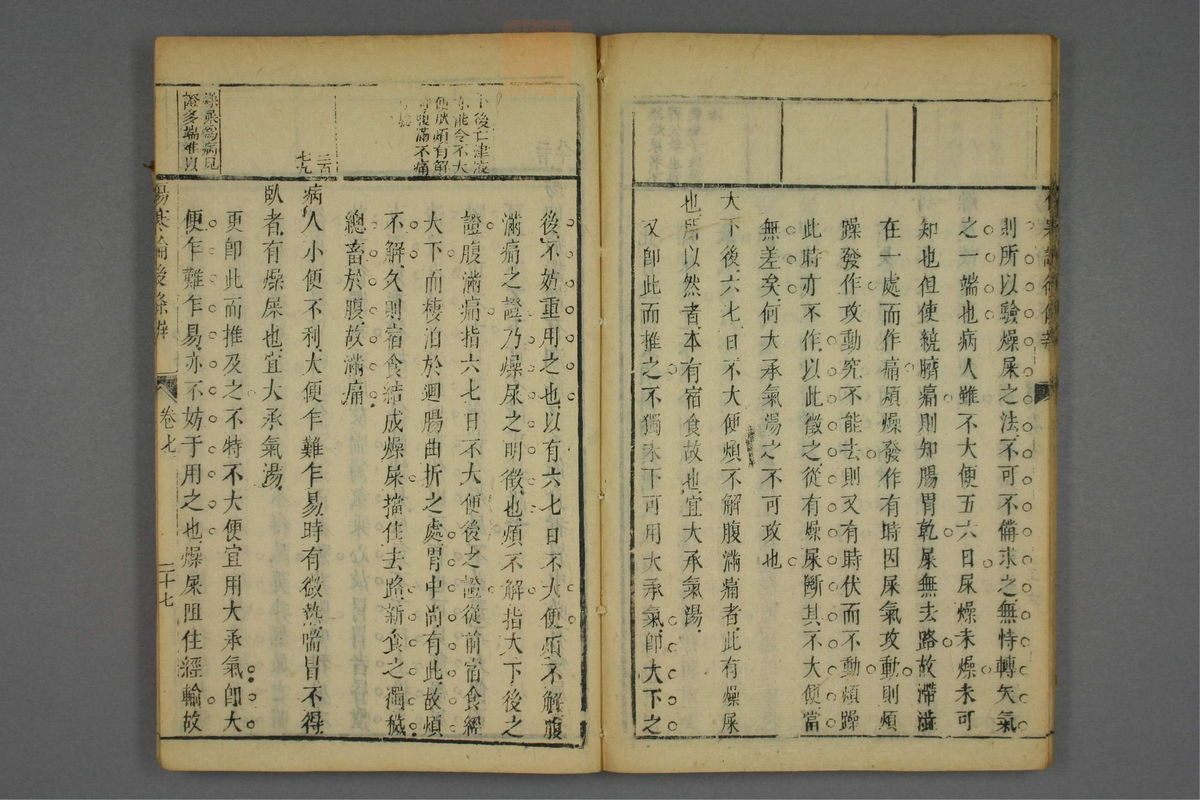 則所以驗燥屎之法不可不備求之無恃轉矢氣
之一端也病人雖不大便五六日屎燥未燥未可
知也但使繞臍痛則知腸胃乾屎無去路故滯澁
在一處而作痛煩燥發作有時因屎氣攻動則煩
躁發作攻動究不能去則又有時伏而不動煩躁
此時亦不作以此徵之從有燥屎斷其不大便當
無差矣何大承氣湯之不可攻也
大下後六七日不大便煩不解腹滿痛者此有燥屎
也所以然者本有宿食故也宜大承氣湯
又卽此而推之不獨未下可用大承氣卽大下之
下後亡津液
能令不大
便然煩有解
腹滿不痛
後不妨重用之也以有六七日不大便煩不解腹
滿痛之證乃燥屎之明徵也煩不解指大下後之
證腹滿痛指六七日不大便後之證從前宿食經
大下而棲泊於迴腸曲折之處胃中尚有此故煩
不解久則宿食結成燥屎擋住去路新食之濁穢
總畜於腹故滿痛
二百
七九
病人小便不利大便乍難乍易時有微熱喘冒不得
臥者有燥屎也宜大承氣湯
燥屎為病見
證多端難以
更卽此而推及之不特不大便宜用大承氣卽大
便乍難乍易亦不妨于用之也燥屎阻住經輸故
傷寒論後條辨
卷七
二十七